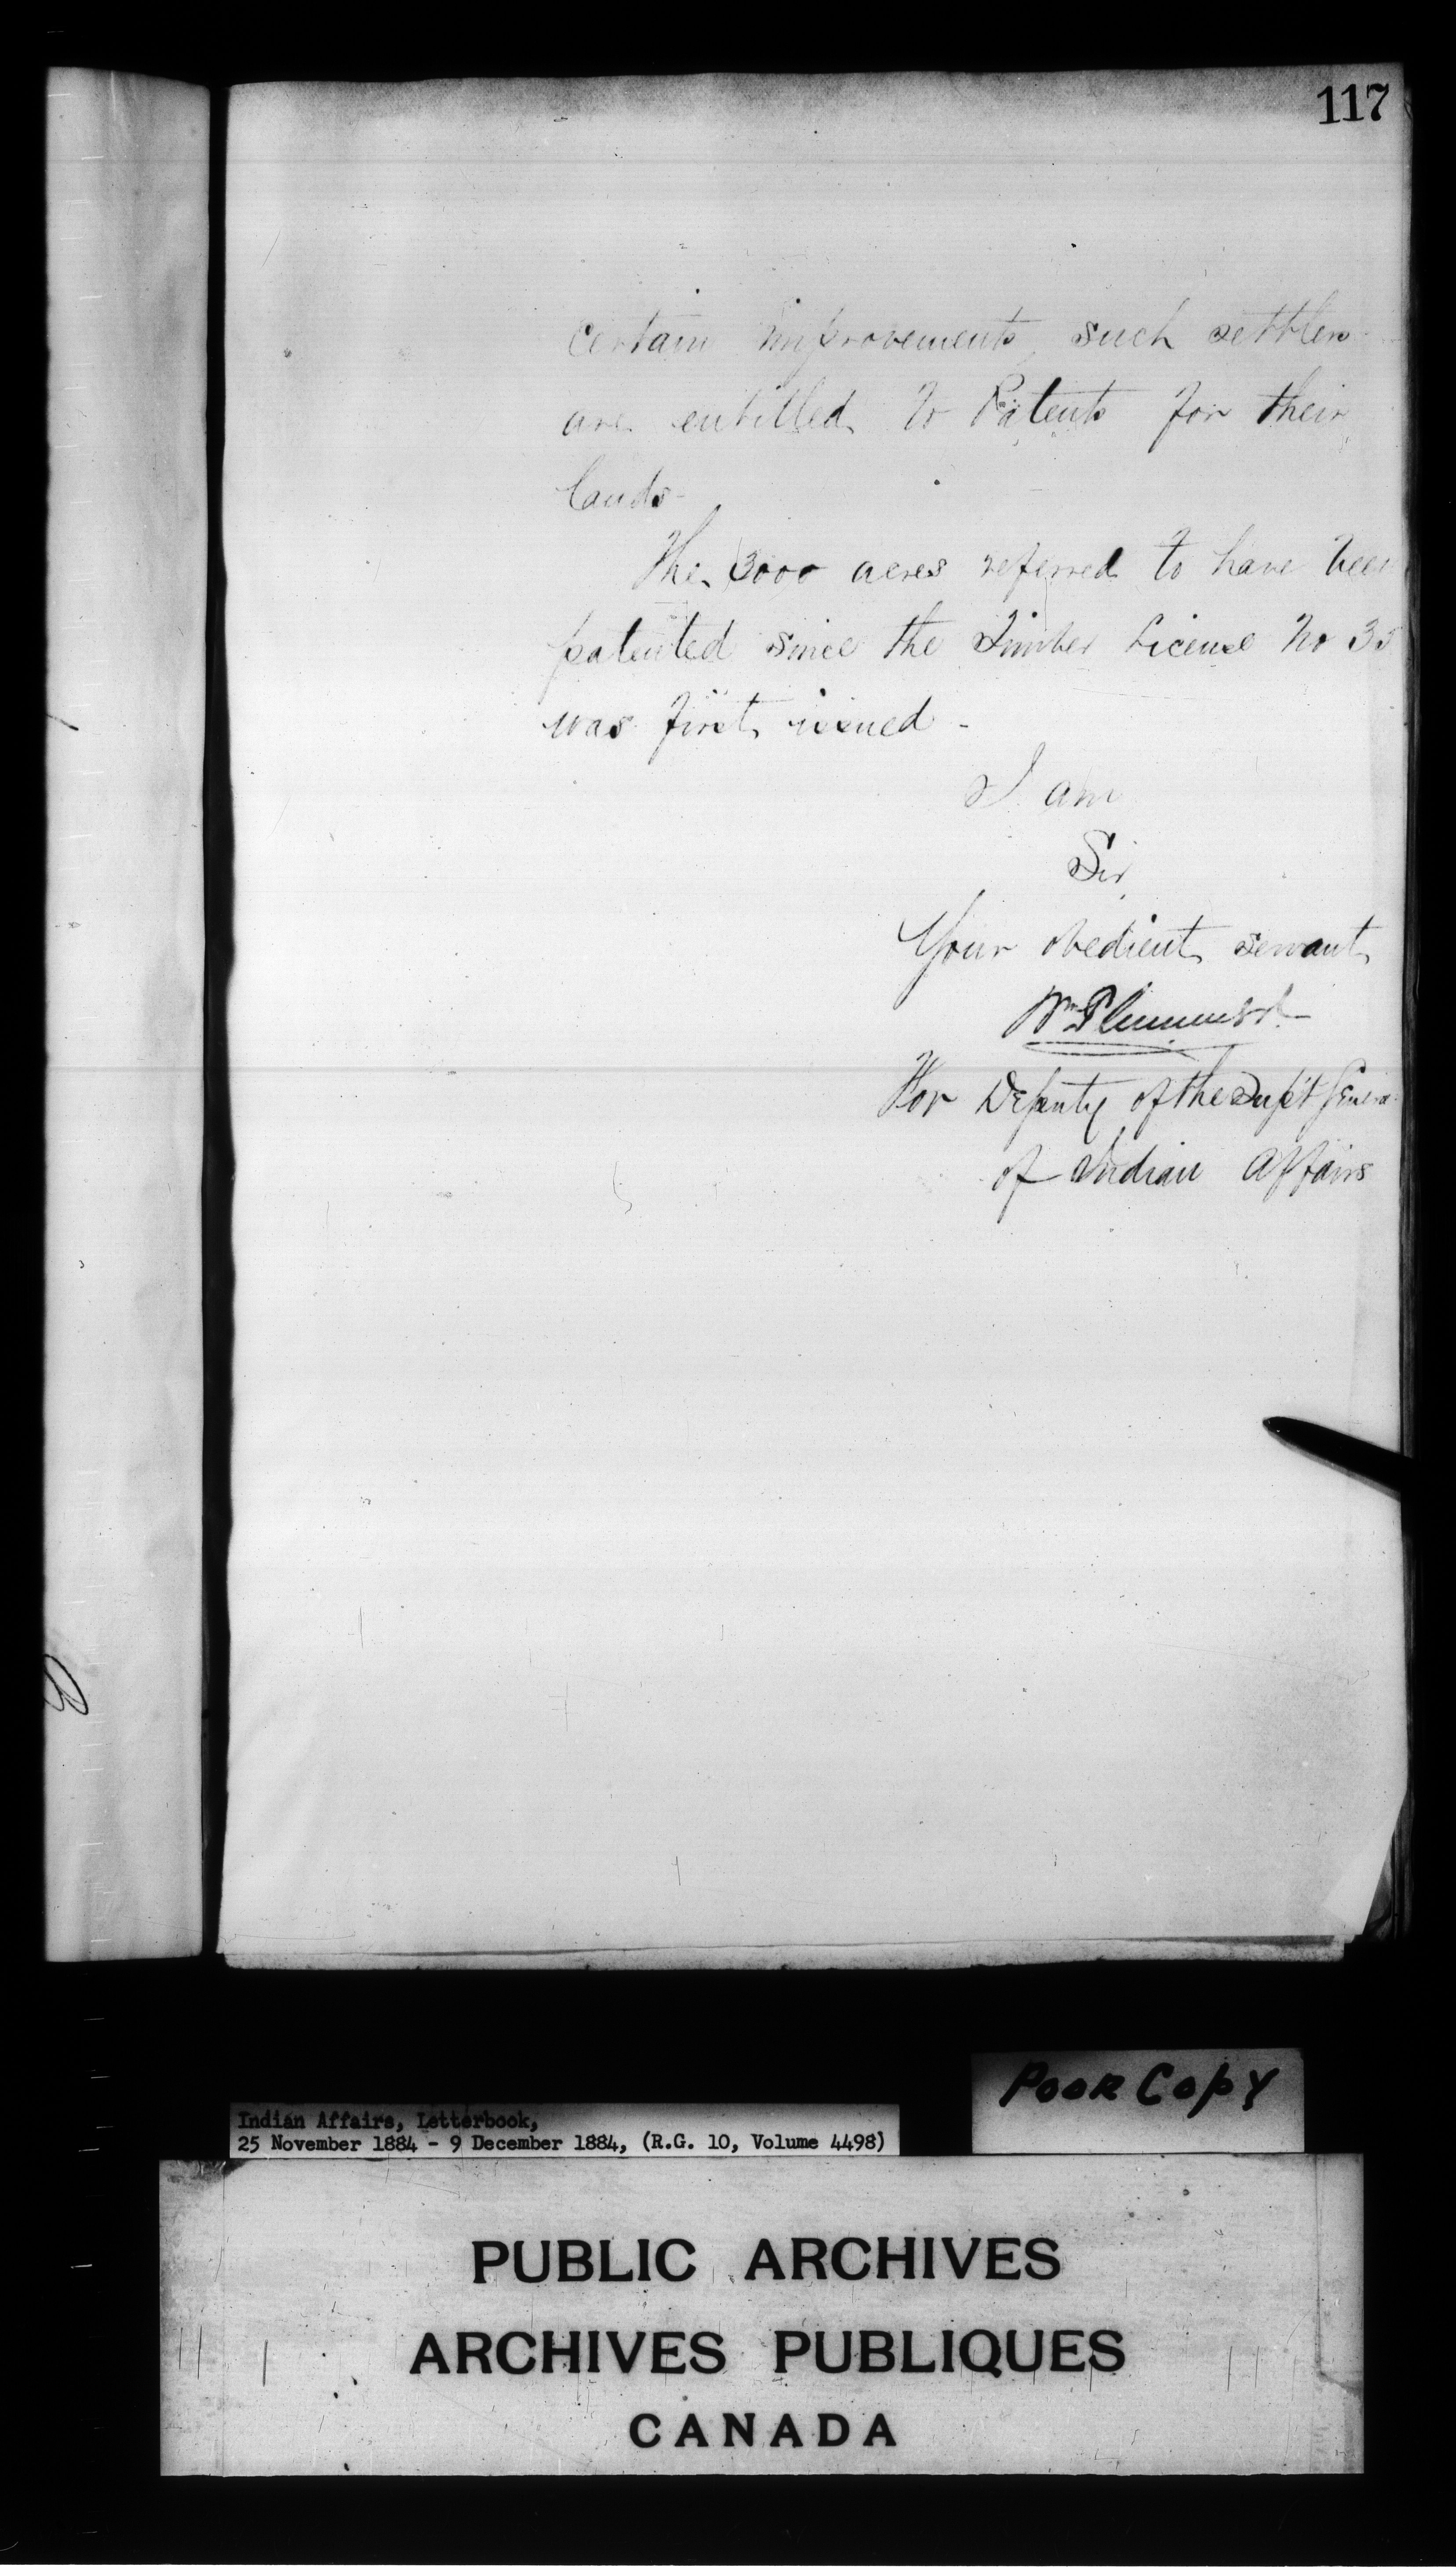 117
certain improvements such settlers
are entitled to Patents for their
lands-
The 3000 acres referred to have been
patented since the Timber License No 35
was first issued -
I am
Sir
Your obedient servant,
Wm Plummer
For Deputy of the Supt General
of Indian Affairs
Poor Copy
Indian Affairs, Letterbook,
25 November 1884 - 9 December 1884, (R.G. 10, Volume 4498)
PUBLIC ARCHIVES
ARCHIVES PUBLIQUES
CANADA